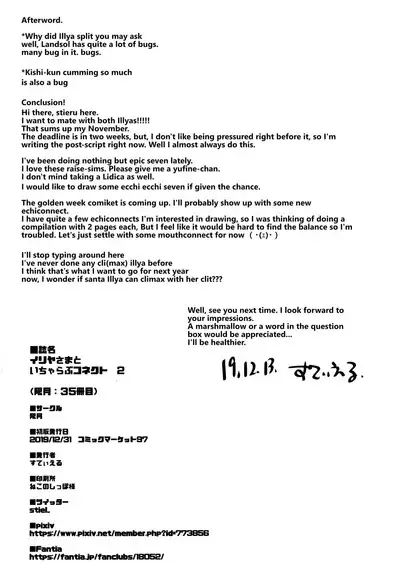 Afterword.
*Why did Illya split you may ask
well, Landsol has quite a lot of bugs.
many bug in it. bugs.
*Kishi-kun cumming so much
is also a bug
Conclusion!
Hi there, stieru here.
I want to mate with both Illyas!!!!!
That sums up my November.
The deadline is in two weeks, but, I don't like being pressured right before it, so I'm
writing the post-script right now. Well I almost always do this.
I've been doing nothing but epic seven lately.
I love these raise-sims. Please give me a yufine-chan.
I don't mind taking a Lidica as well.
I would like to draw some ecchi ecchi seven if given the chance.
The golden week comiket is coming up. I'll probably show up with some new
echiconnect.
I have quite a few echiconnects I'm interested in drawing, so I was thinking of doing a
compilation with 2 pages each, But I feel like it would be hard to find the balance so I'm
troubled. Let's just settle with some mouthconnect for now （・(ェ)・）
I'll stop typing around here
I've never done any cli(max) illya before
I think that's what I want to go for next year
now, I wonder if santa Illya can climax with her clit???
Well, see you next time. I look forward to
your impressions.
A marshmallow or a word in the question
box would be appreciated...
I'll be healthier.
19.12.13. すてぃえる.
■誌名
イリヤさまと
いちゃらぶコネクト 2
(隴月:35冊目)
■サークル
隴月
■初版発行日
2019/12/31 コミックマーケット97
■発行者
すてぃえる
■印刷所
ねこのしっぽ様
■ツイッター
stiel.
■pixiv
https://www.pixiv.net/member.php?id=773856
■Fantia
https://fantia.jp/fanclubs/18052/